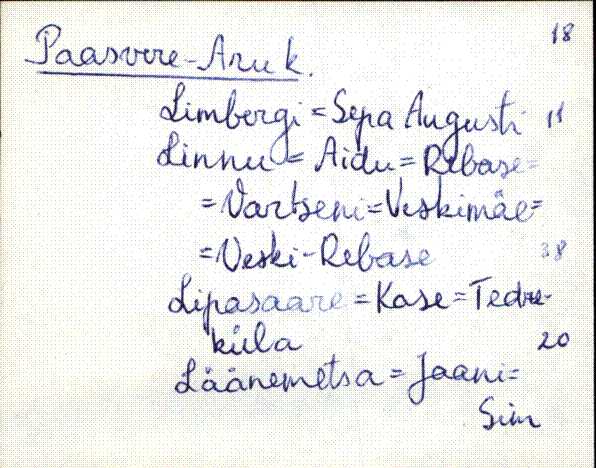 18
Paasvere-Aru k.
Limbergi = Sepa Augusti 11
Linnu = Aidu = Rebase =
= Vartseni = Veskimäe =
= Veski-Rebase 38
Lipasaare = Kase = Tedre-
küla 20
Läänemetsa = Jaani =
Sim